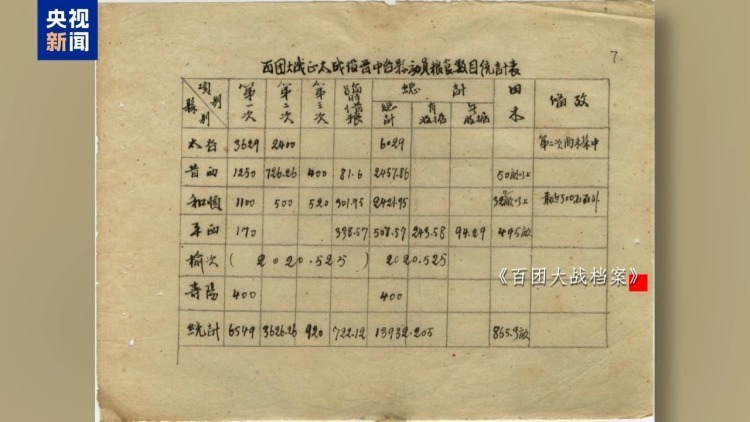 央视新闻
7.
百团大战正太战役晋中各县动员粮食数目统计表
项别 县别 第一次 第二次 第三次 临时借粮 总计 田禾 备考
总计 有收据 无收据
太谷 3629 2400 6029 第二次尚未集中
昔西 1250 726.26 400 81.6 2457.86 50亩以上
和顺 1100 500 520 301.75 2421.75 320亩以上
平西 170 338.57 508.57 243.58 94.29 495亩
榆次 (2020.525) 2020.525
寿阳 400 400
统计 6549 3626.26 920 722.12 13932.205 865.3亩
《百团大战档案》